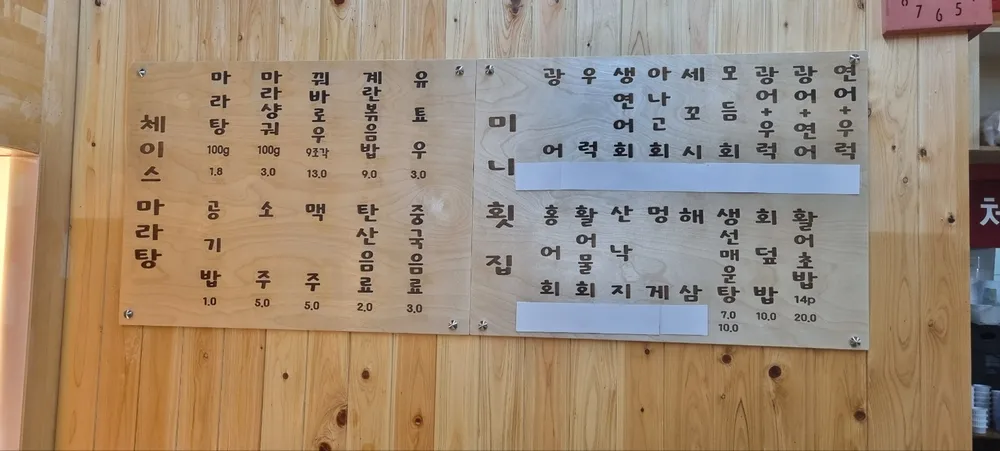 체이스 마라탕
마라탕 100g 1.8
마라샹궈 100g 3.0
꿔바로우 9조각 13.0
계란볶음밥 9.0
유토우 3.0
공기밥 1.0
소주 5.0
맥주 5.0
탄산음료 2.0
중국음료 3.0
미니횟집
광어
우럭
생연어회
아나고회
세꼬시
모듬회
광어+우럭
광어+연어
연어+우럭
홍어회
활어물회
산낙지
멍게
해삼
생선매운탕 7.0 10.0
회덮밥 10.0
활어초밥 14p 20.0
8 7 6 5